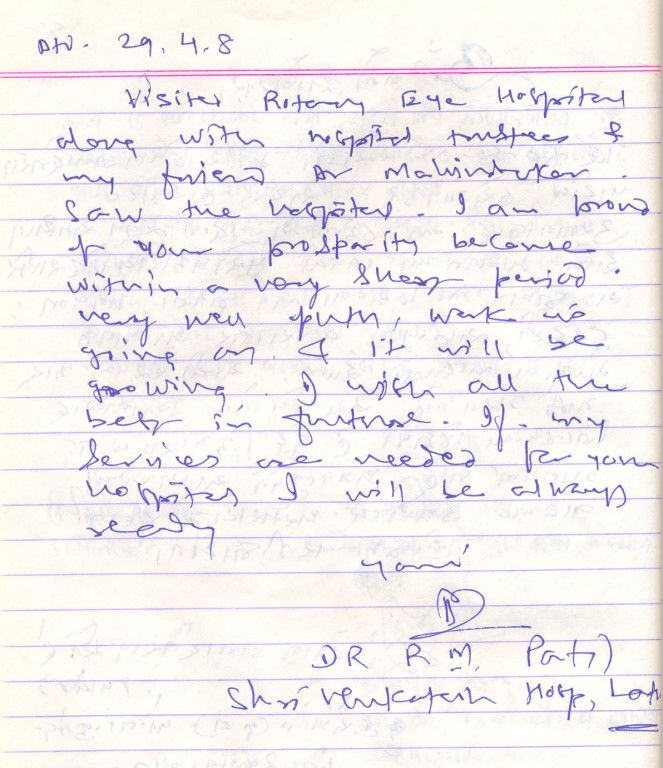 29.4.8
Visited Rotary Eye Hospital
along with hospital trustees &
my friend Dr
Saw the hospital. I am proud
of your prosparity because
within a very short period.
very well , work is
going on. & it will be
growing. I wish all the
best in future. If my
services are needed for your
hospital I will be always
ready
DR R.M. Patil
Shri Venkatesh Hosp,